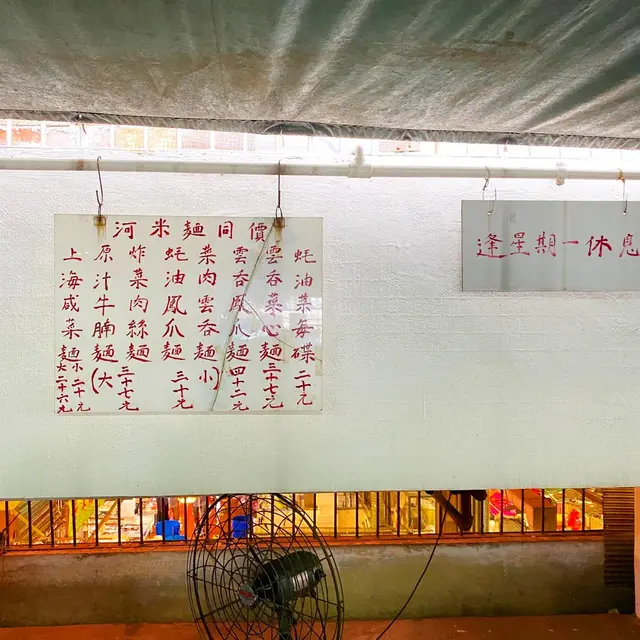 河米麵同價
蚝油菜每碟二十元
雲吞菜心麵三十七元
雲吞鳳爪麵四十二元
菜肉雲吞麵小)
蚝油鳳爪麵三十元
炸菜肉絲麵三十七元
原汁牛腩麵(大
上海咸菜麵小二十元
大二十六元
逢星期一休息